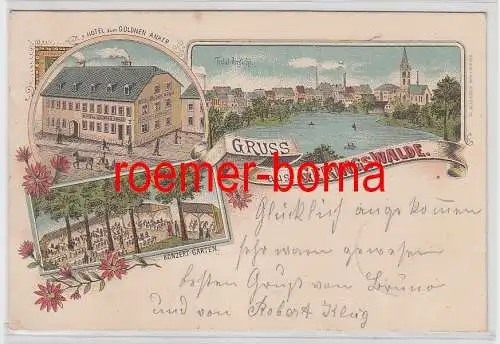 HOTEL zum GOLDNEN ANKER
Total-Ansicht
GRUSS
aus GERINGSWALDE.
roemer-borna
KONZERT-GARTEN.
Glücklich angekommen
sehr warm gewesen
besten Gruß von Bruno
und von Robert Klug